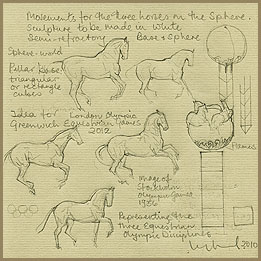 Movements for the three horses on the Sphere.
Sculpture to be made in white
Semi-refractory Base & Sphere
Sphere-world
Pillar base
triangular
or rectangle
cubes
Idea for London Olympic
Greenwich Equestrian Games
2012
Flames
Image of
Stockholm
Olympic Games
1956
Representing the
three Equestrian
Olympic Disciplines
2010